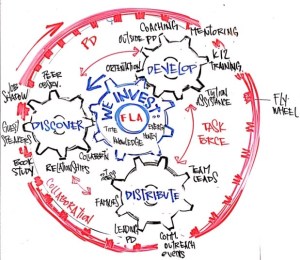 COACHING
MENTORING
OUTSIDE PD
PD
ORIENTATION
K12
TRAINING
DEVELOP
PEER
OBSERV.
JOB
SHADOW
TUITION
ASSISTANCE
FLY
WHEEL
WE INVEST
FLA
TIME
ENERGY
MONEY
KNOWLEDGE
GUEST
SPEAKERS
DISCOVER
TASK
FORCE
COLLABOR
BOOK
STUDY
RELATIONSHIPS
TEAM
LEADS
COLLABORATION
FAMILIES
DISTRIBUTE
LEADING
PD
COMM.
OUTREACH
EVENTS